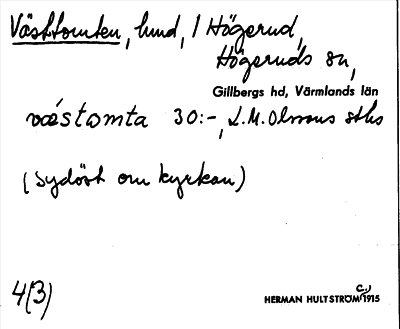 Västtomten, hmd, i Högerud,
Högeruds sn,
Gillbergs hd, Värmlands län
våstomta 30:-, L.M. Olssons sths
(Sydöst om kyrkan)
4(3)
HERMAN HULTSTRÖM c.1915